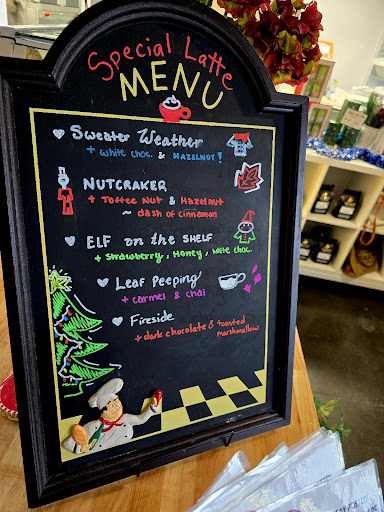 Special Latte
MENU
Sweater Weather
+ white choc. & HAZELNUT!
NUTCRAKER
+ Toffee Nut & Hazelnut
~ dash of cinnamon
ELF on the SHELF
+ strawberry, Honey, white choc
Leaf Peeping
+ carmel & chai
Fireside
+ dark chocolate & toasted
marshmallow